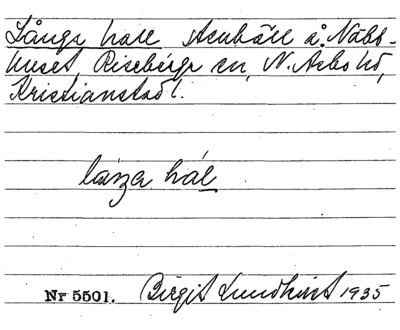 Långe hall stenhäll å Nabb-
huset, Riseberga sn, N. Åsbo hd,
Kristianstad l.
hál
Nr 5501. Birgit Lundkvist 1935